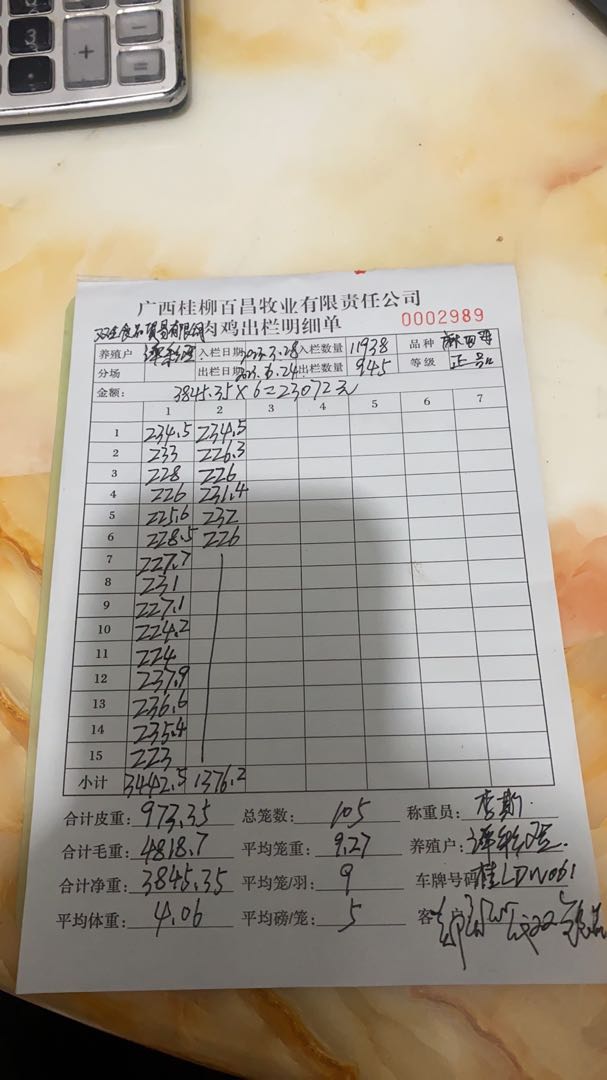 广西桂柳百昌牧业有限责任公司
肉鸡出栏明细单 0002989
养殖户 入栏日期 2023.3.28 入栏数量 11938 品种 麻四
分场 出栏日期 2023.6.24 出栏数量 945 等级 正品
金额: 3845.35×6=23072元
1 2 3 4 5 6 7
1 234.5 234.5
2 233 226.3
3 228 226
4 226 231.4
5 225.6 232
6 228.5 226
7 227.7
8 231
9 227.1
10 224.2
11 224
12 237.9
13 236.6
14 235.4
15 223
小计 3442.5 1376.2
合计皮重: 973.35 总笼数: 105 称重员: 李斯
合计毛重: 4818.7 平均笼重: 9.27 养殖户:
合计净重: 3845.35 平均笼/羽: 9 车牌号码 桂LDW061
平均体重: 4.06 平均磅/笼: 5 客户